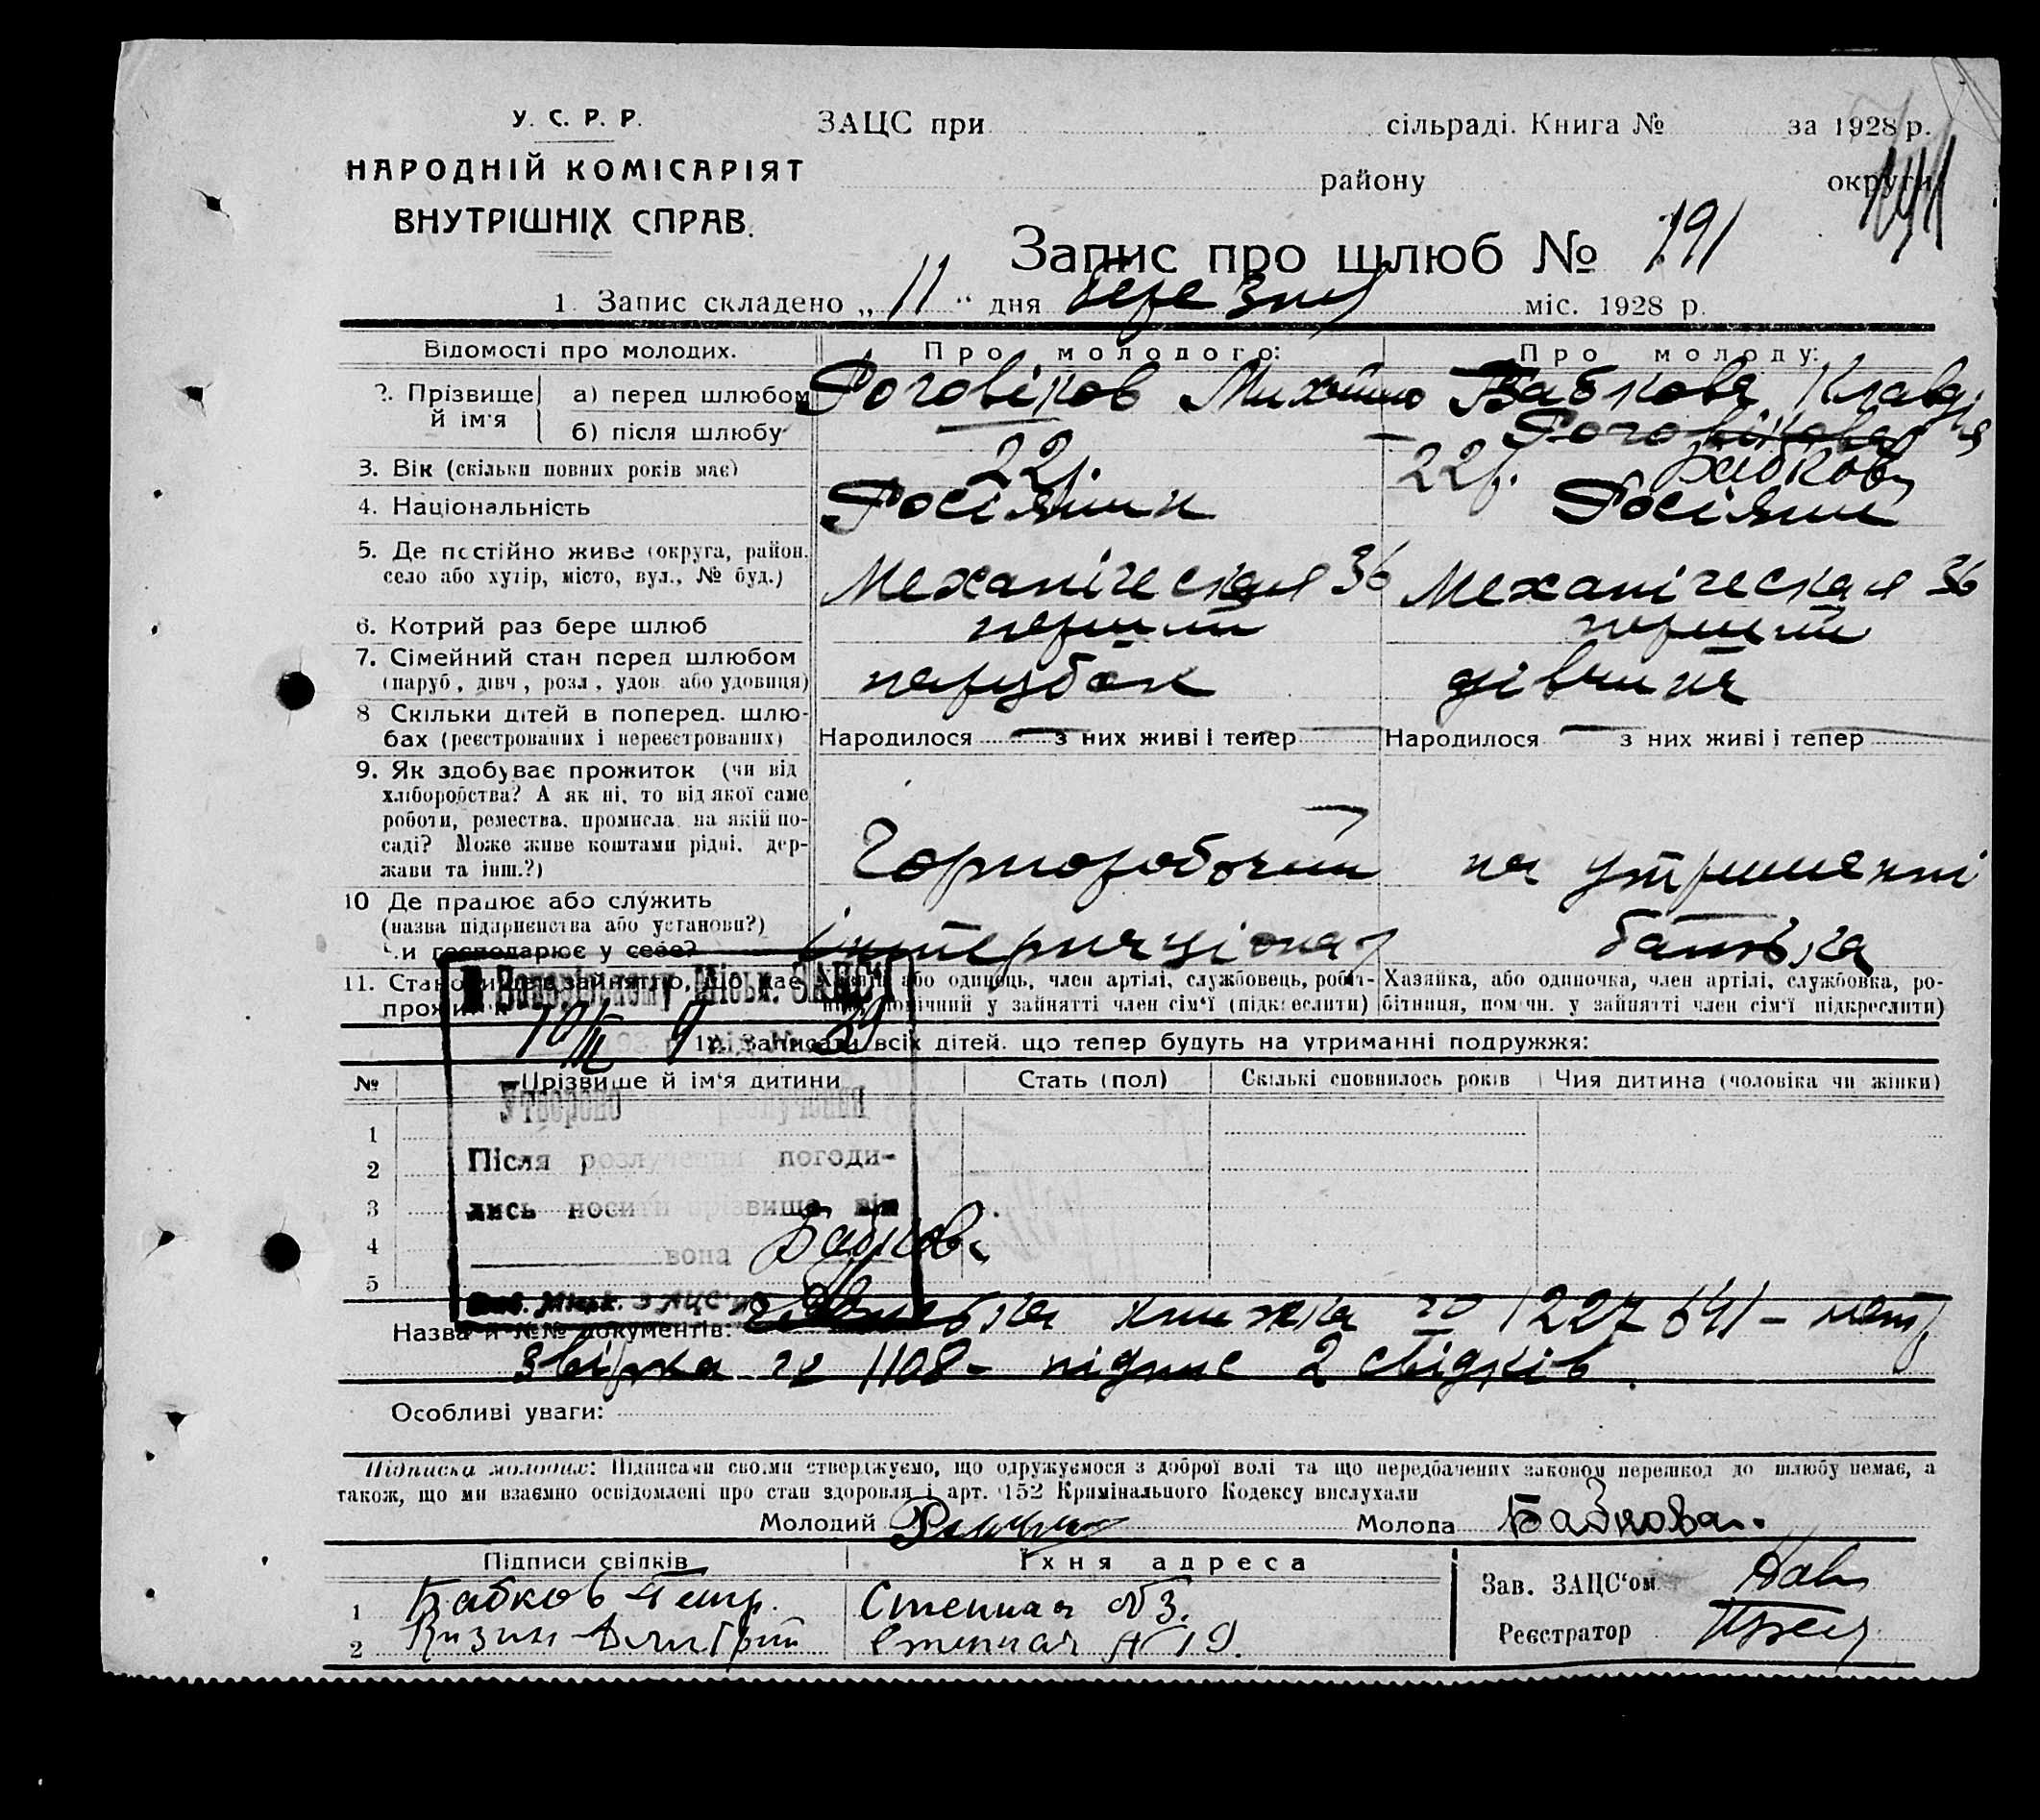 У. С. Р. Р.
НАРОДНІЙ КОМІСАРІЯТ
ВНУТРІШНІХ СПРАВ.
ЗАЦС при сільраді. Книга № за 1928 р.
району округи
Запис про шлюб № 191
1. Запис складено „ 11 “ дня березня міс. 1928 р.
Відомості про молодих. Про молодого: Про молоду:
2. Прізвище й ім‘я а) перед шлюбом Роговіков Михайло Бабкова Клавдія
б) після шлюбу Роговікова Бабкова
3. Вік (скільки повних років має) 22 р. 22 р.
4. Національність Росіянин Росіянин
5. Де постійно живе (округа, район,
село або хутір, місто, вул., № буд.) Механіческая 36 Механіческая 36
6. Котрий раз бере шлюб перший перший
7. Сімейний стан перед шлюбом
(паруб., дівч., розл., удов. або удовиця) парубок дівчина
8 Скільки дітей в поперед. шлю-
бах (реєстрованих і нереєстрованих) Народилося з них живі і тепер Народилося з них живі і тепер
9. Як здобуває прожиток (чи від
хліборобства? А як ні, то від якої саме
роботи, ремества, промисла, на якій по-
саді? Може живе коштами рідні, дер-
жави та інш.?) Горноробочий на утриманні
10 Де працює або служить
(назва підприємства або установи?)
чи господарює у себе? Інтернаціонал батька
11. Становище в зайнятт., що дає Хазяїн, або одинець, член артілі, службовець, робіт- Хазяйка, або одиночка, член артілі, службовка, ро-
прожиток помічний у зайнятті член сім‘ї (підкреслити) бітниця, помічн. у зайнятті член сім‘ї підкреслити)
Міськ. ЗАЦС‘і
10/III 9 39
12. Записати всіх дітей, що тепер будуть на утриманні подружжя:
№ Прізвище й ім‘я дитини Стать (пол) Скількі сповнилось років Чия дитина (чоловіка чи жінки)
Утворено розлучення
1
Після розлучення погоди-
2
лись носити прізвище він
3
4 вона Бабкова
5
Міськ. ЗАЦС‘у
Назва й №№ документів: книжка № 1227641 –
1108 – підпис 2 свідків.
Особливі уваги:
Підписка молодих: Підписами своїми стверджуємо, що одружуємося з доброї волі та що передбачених законом перешкод до шлюбу немає, а
також, що ми взаємно освідомлені про стан здоровля і арт. 152 Кримінального Кодексу вислухали
Молодий Молода Бабкова.
Підписи свідків Їхня адреса
1 Бабков Петр. Стенная №3.
2 Дмитрий Стенная № 19.
Зав. ЗАЦС‘ом
Реєстратор